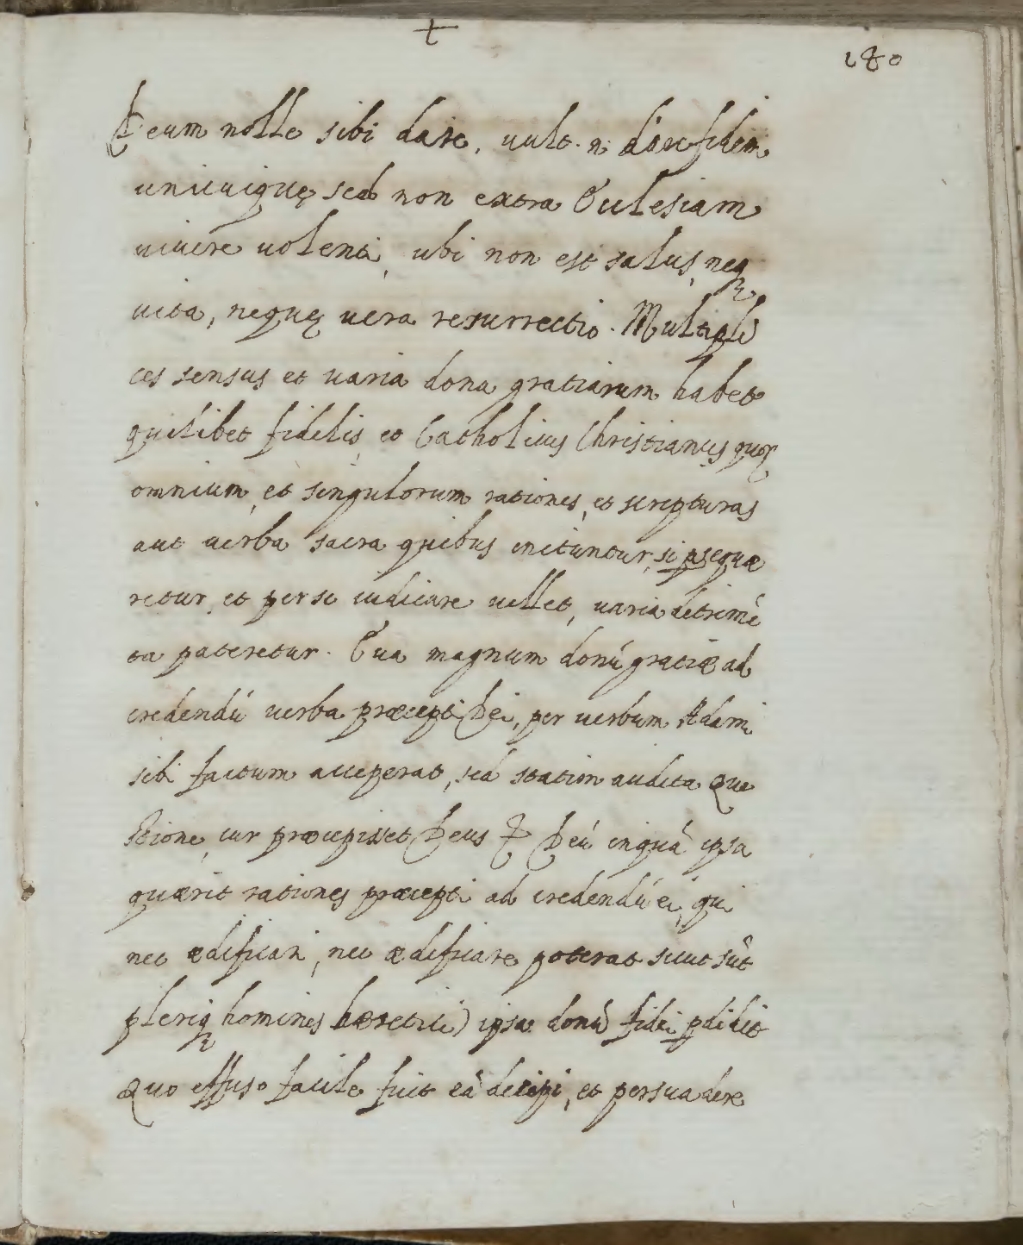 +
180
Deum nolle sibi dare, uult. n. dare fidem
unicuiquę sed non extra Ecclesiam
uiuere uolenti, ubi non est salus, neq
uita, nequę uera resurrectio. Multipli
ces sensus et uaria dona gratiarum habet
quilibet fidelis, et Catholicus Christianus, quor
omnium, et singulorum rationes, et scripturas
aut uerba sacra quibus nituntur, si pseque
retur, et per se iudicare uellet, uaria detrimē
ta pateretur. Eua magnum donū gratiæ ad
credendū uerba præcepti Dei, per uerbum Adami
sibi factum acceperat, sed statim audita que
stione, cur præcepisset Deus
quærit rationes præcepti ad credendū ei, qui
nec ædificari, nec ædificare poterat sicut sūt
pleriq homines hæretici) ipsa donū fidei pdidit
Quo effuso facile fuit eā decipi, et persuadere